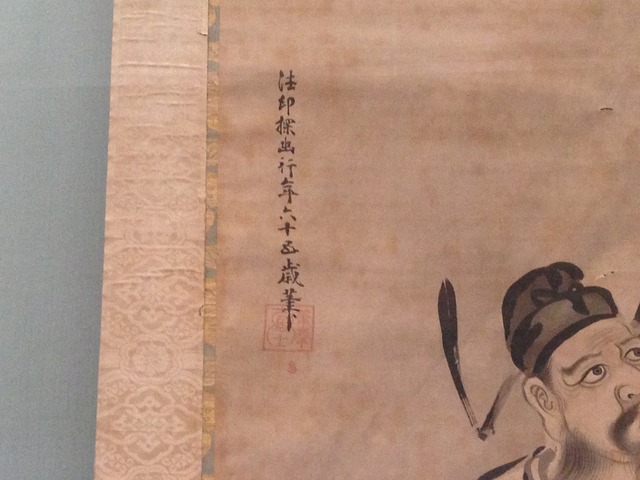 法印探幽行年六十五歳筆